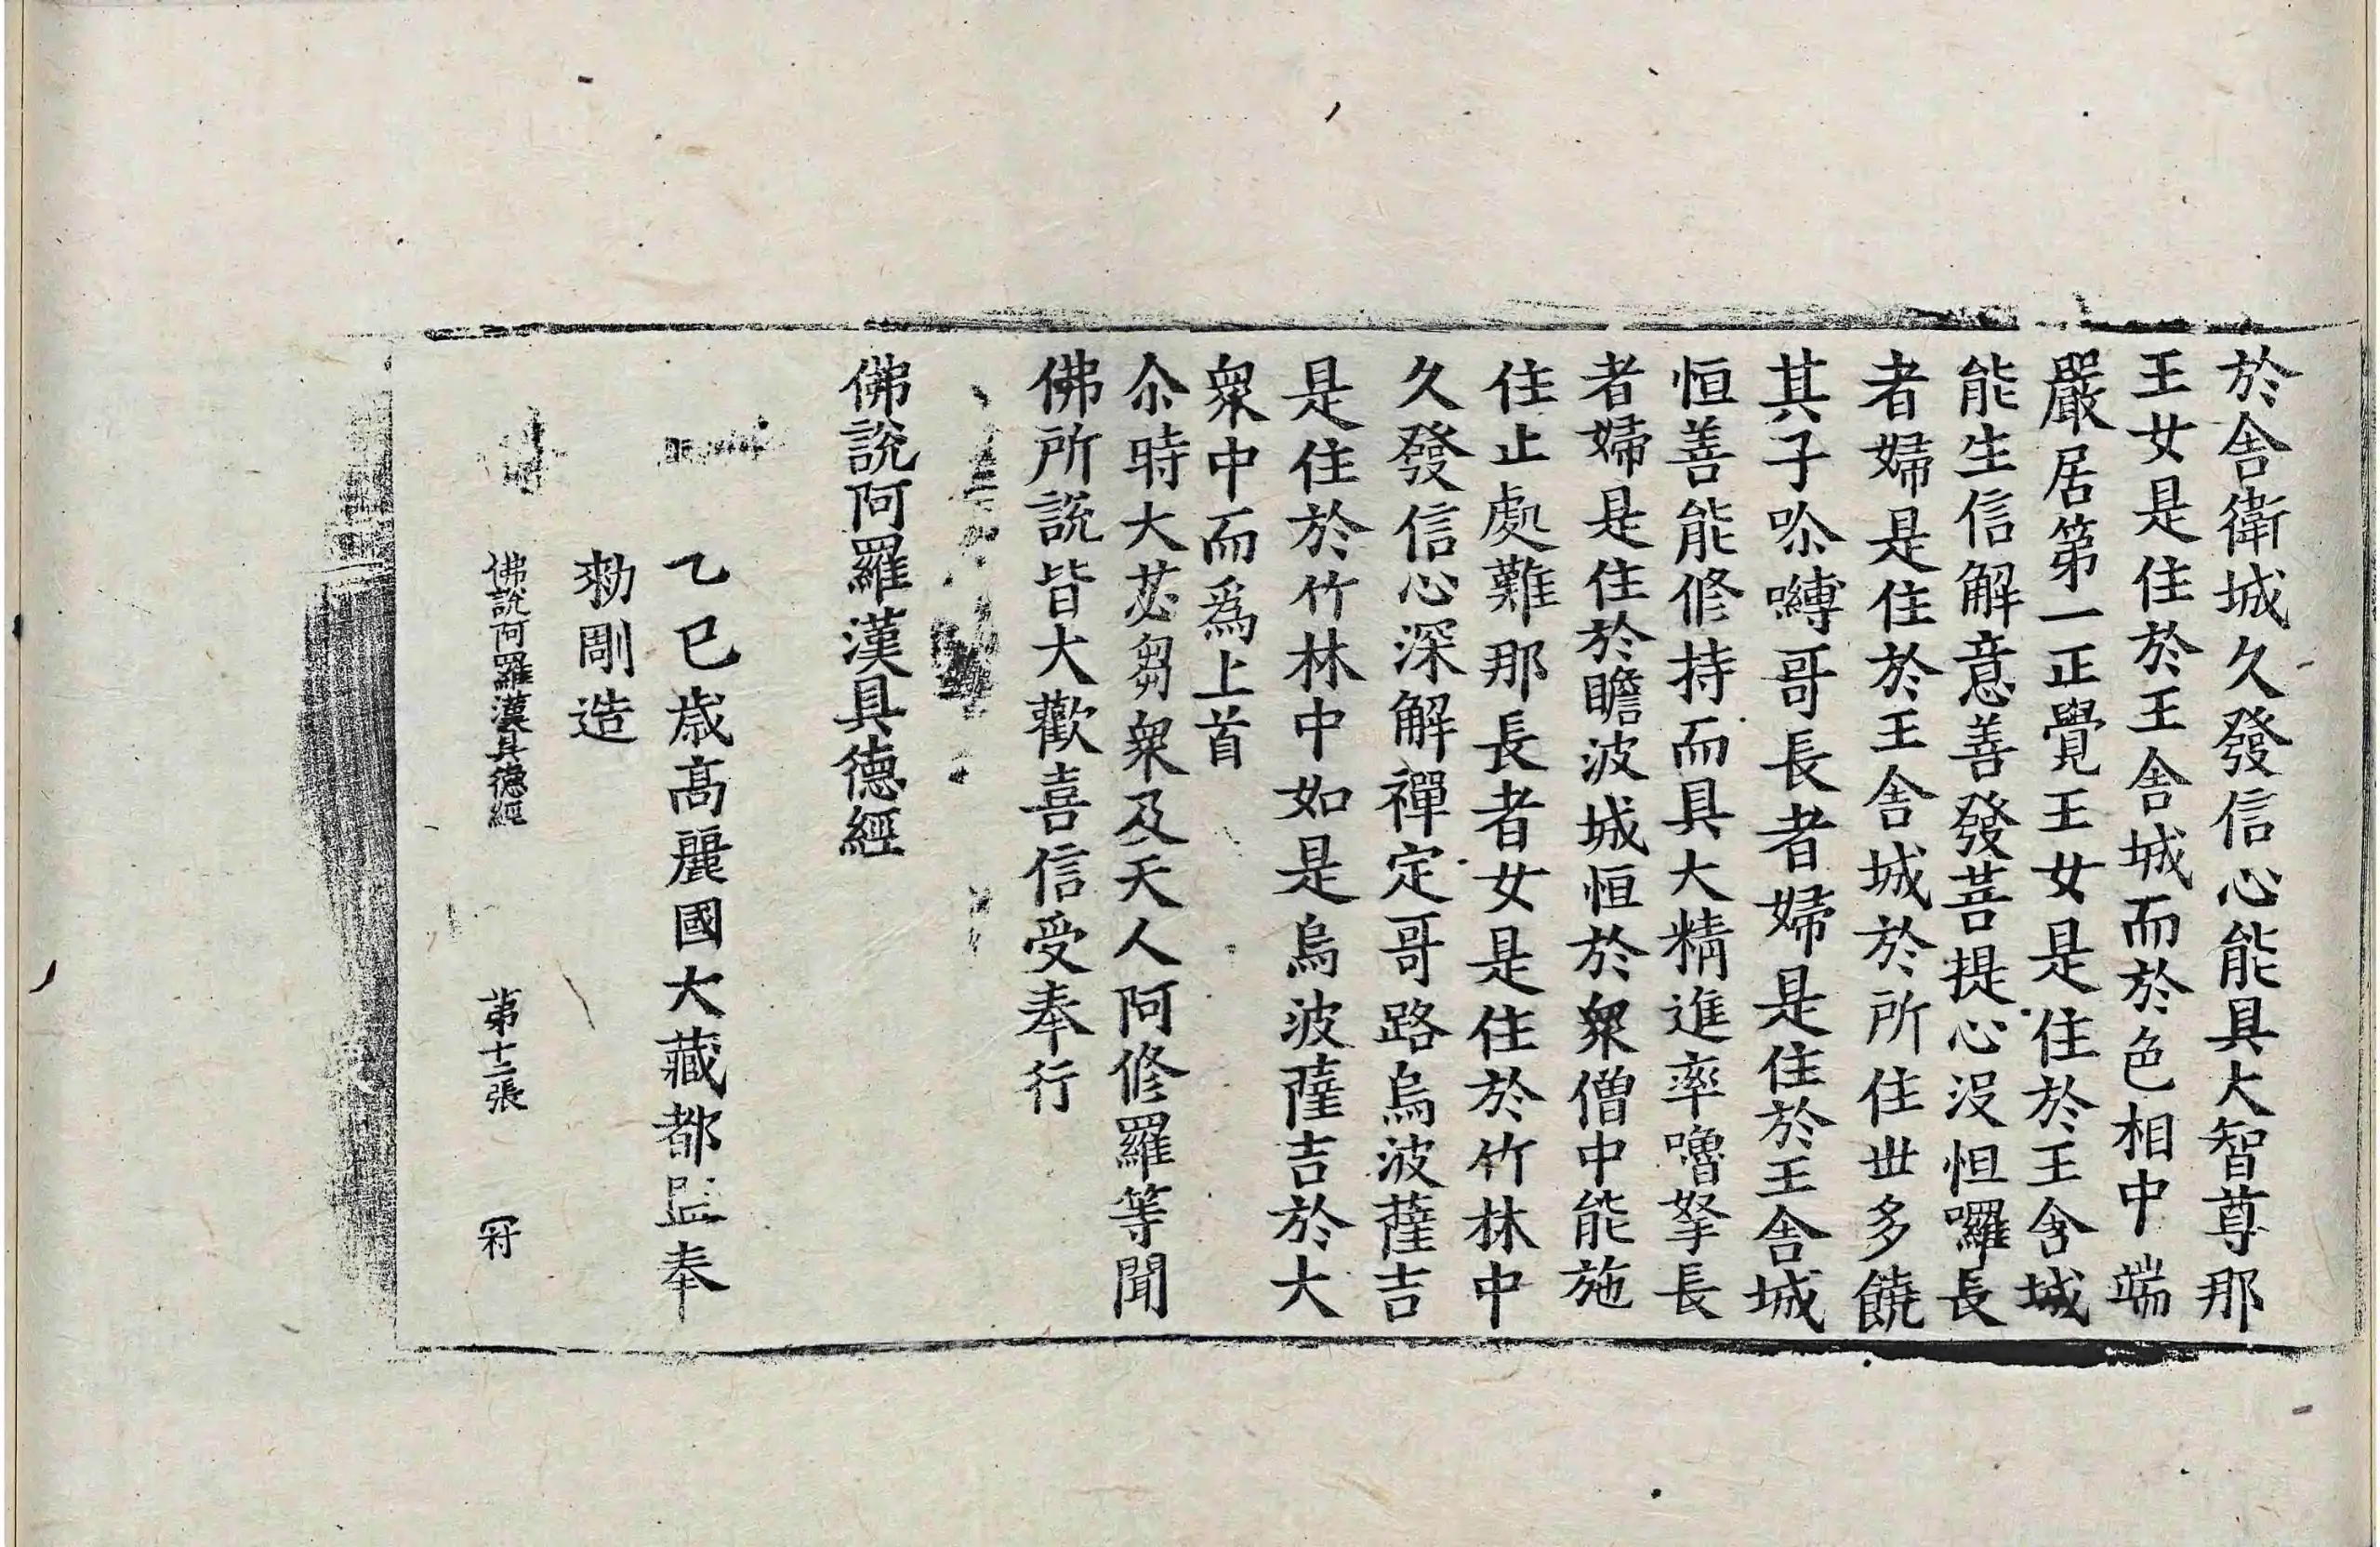 於舎衛城久發信心能具大智尊那
王女是住於王舎城而於色相中端
嚴居第一正覺王女是住於王舎城
能生信解意善發菩提心沒怛囉長
者婦是住於王舎城於所住世多饒
其子吩嚩哥長者婦是住於王舎城
恒善能修持而具大精進率嚕拏長
者婦是住於瞻波城恒於衆僧中能施
住止處難那長者女是住於竹林中
久發信心深解禪定哥路烏波薩吉
是住於竹林中如是烏波薩吉於大
衆中而爲上首
尒時大苾芻衆及天人阿修羅等聞
佛所說皆大歡喜信受奉行
佛說阿羅漢具德經
乙巳歳髙麗國大藏都監奉
勑彫造
佛說阿羅漢具德經 第十二張